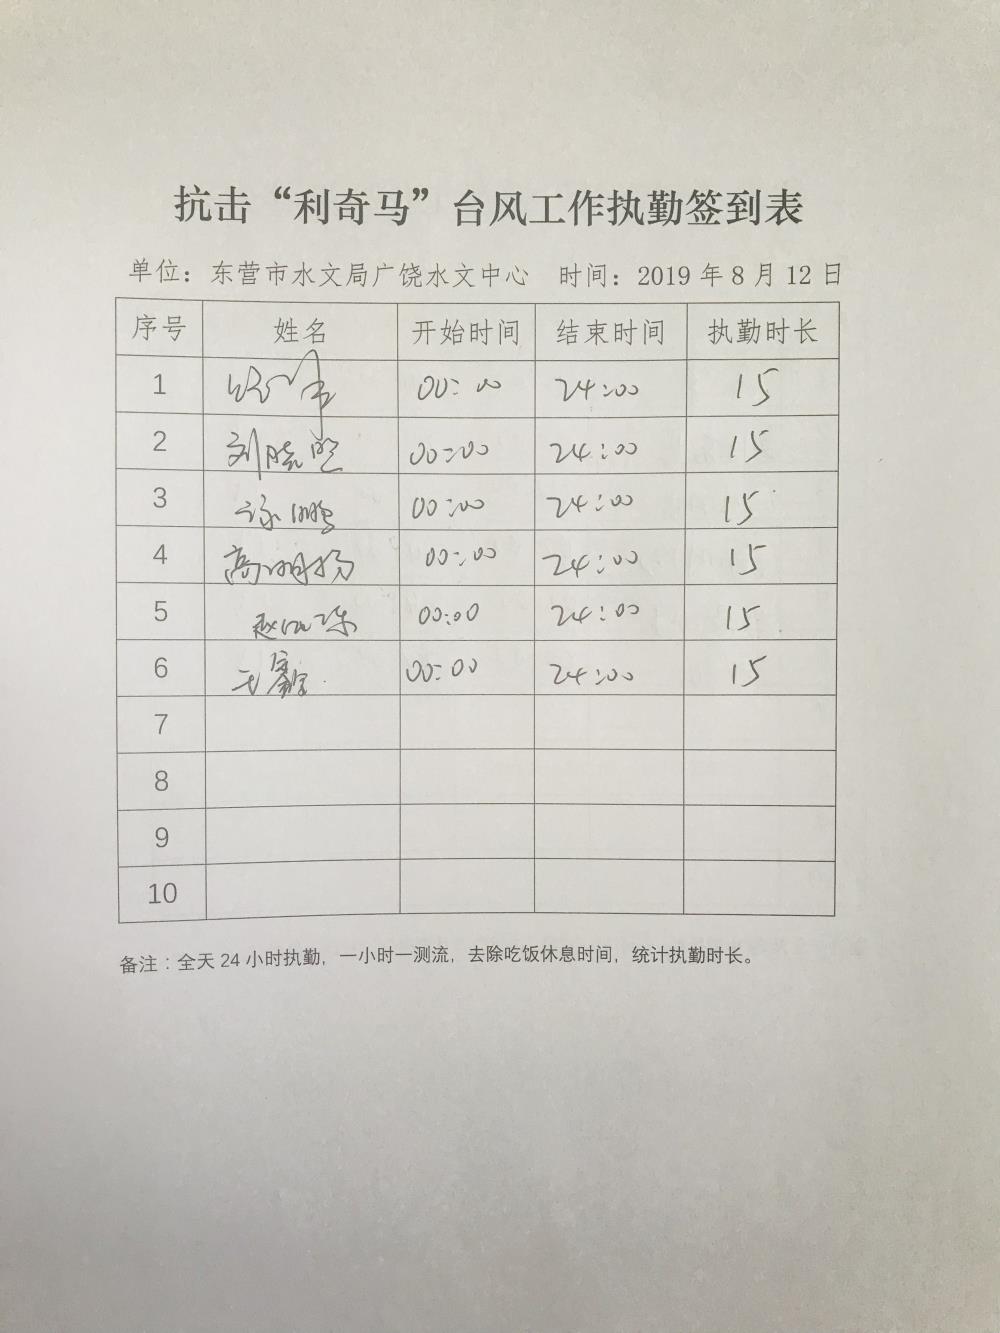 抗击“利奇马”台风工作执勤签到表
单位：东营市水文局广饶水文中心 时间：2019年8月12日
序号 姓名 开始时间 结束时间 执勤时长
1 00:00 24:00 15
2 刘晓 00:00 24:00 15
3 鹏 00:00 24:00 15
4 高明扬 00:00 24:00 15
5 赵 00:00 24:00 15
6 王 00:00 24:00 15
7
8
9
10
备注：全天24小时执勤，一小时一测流，去除吃饭休息时间，统计执勤时长。